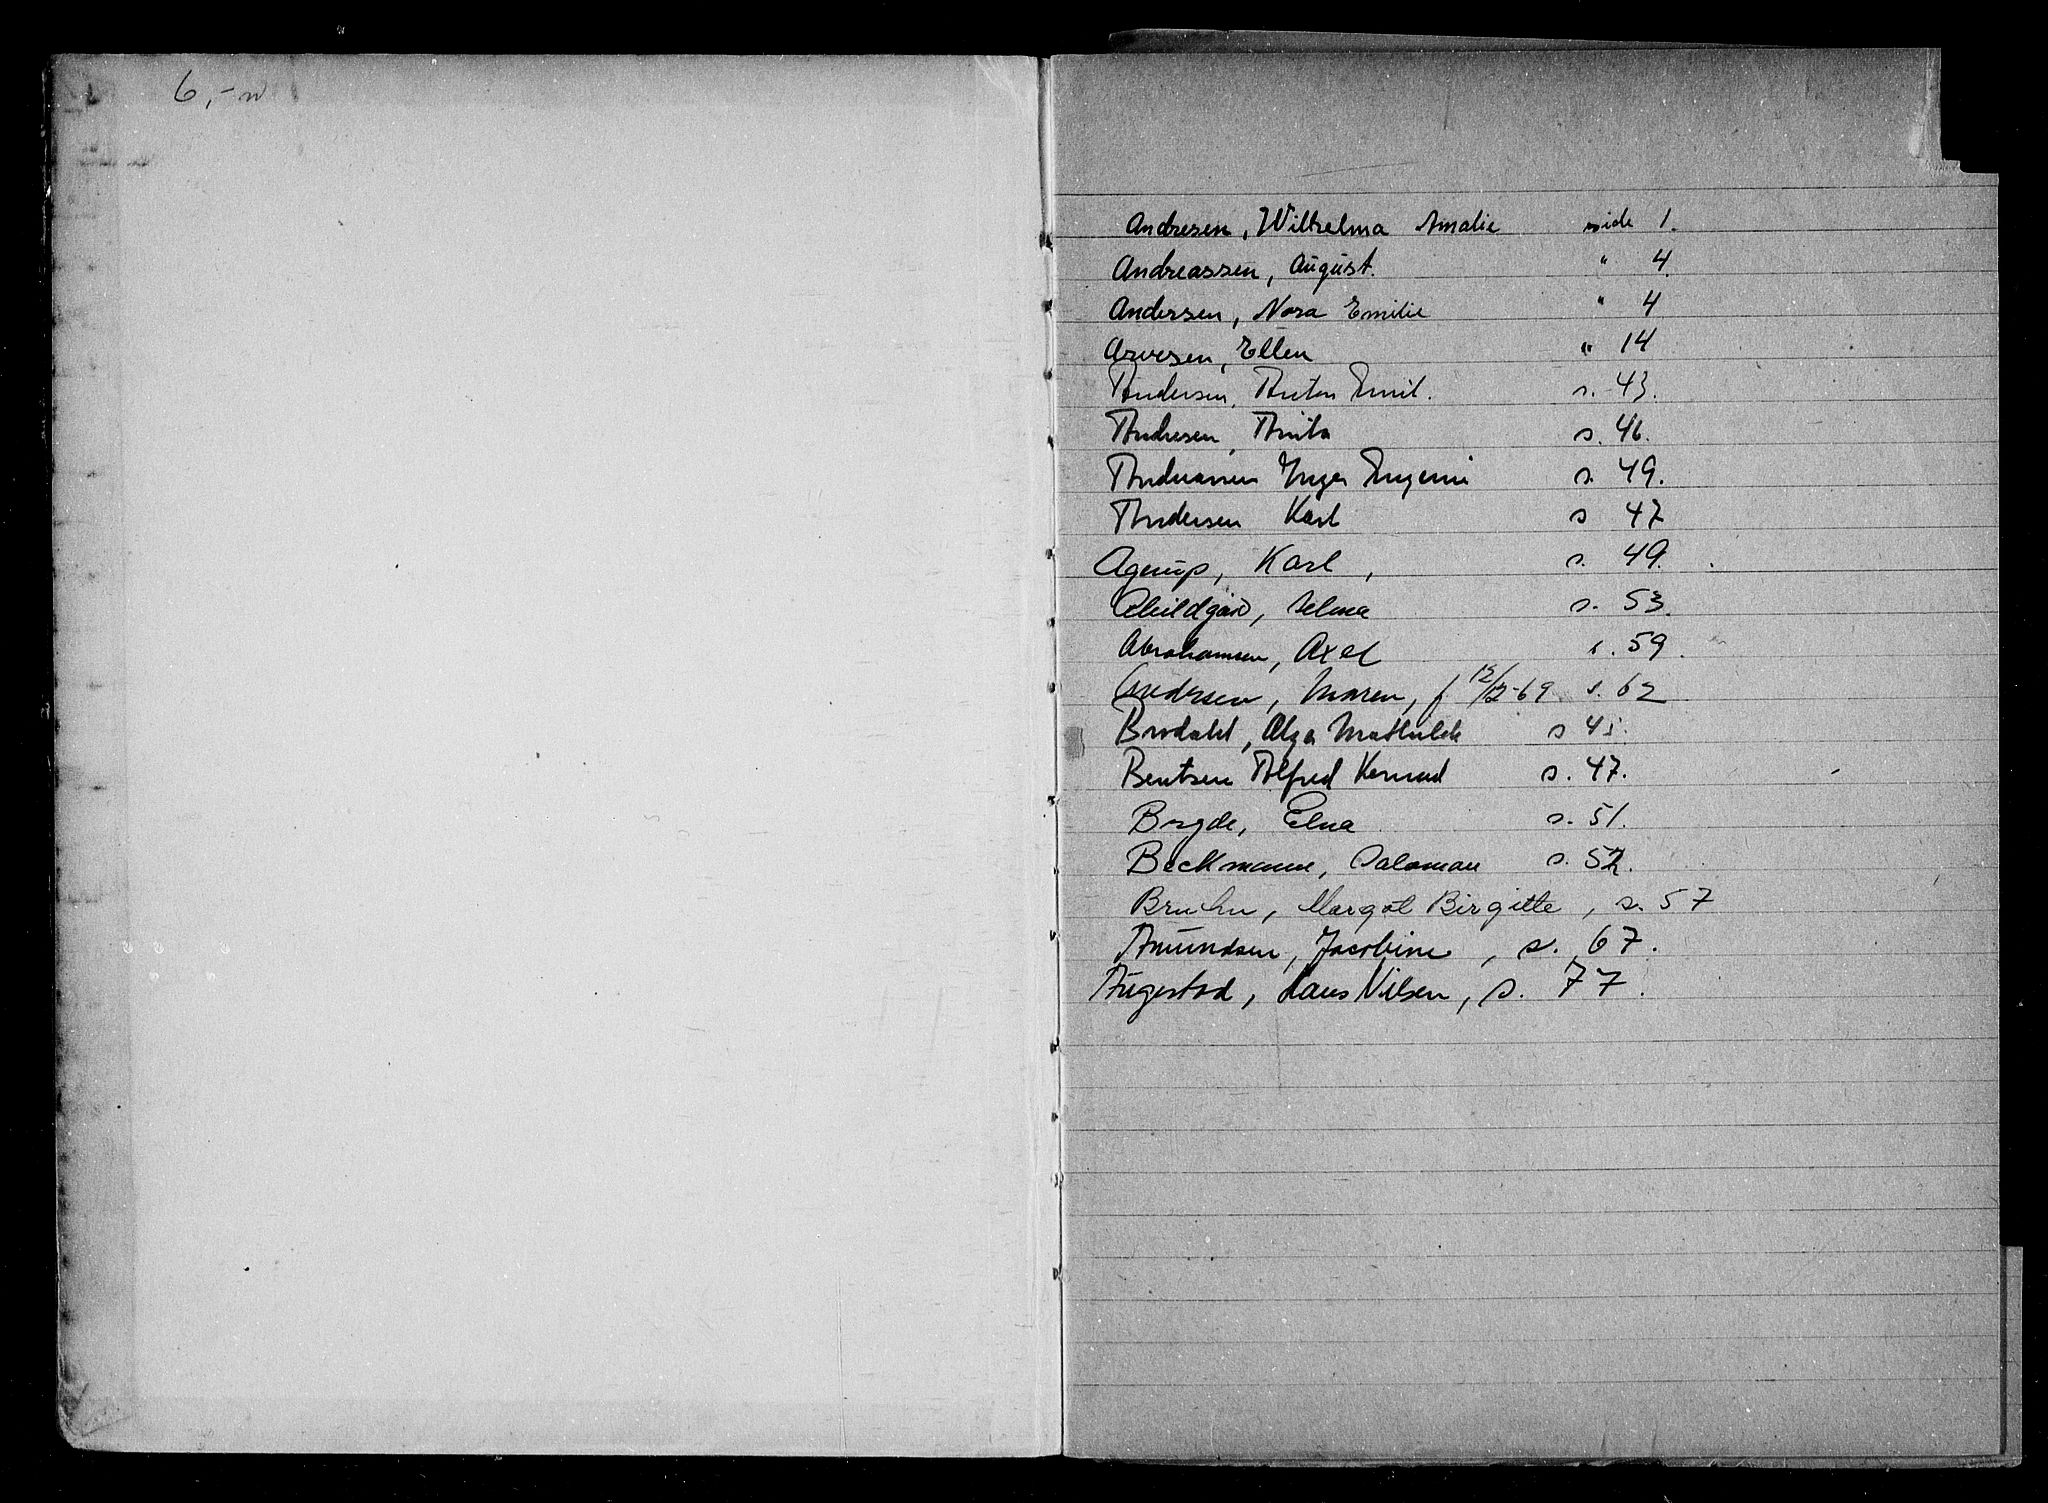 6,-
Andresen, Wilhelma Amalie side 1.
Andreassen, August. " 4.
Andersen, Nora Emilie " 4
Arvesen, Ellen " 14
Andersen, Anton Emil. s. 43.
Andresen, Anita s. 46.
Andreassen Inger Eugenie s. 49.
Andersen Karl s 47
Agerup, Karl, s. 49.
Abildgård, Selma s. 53.
Abrahamsen, Axel s. 59.
Andersen, Maren, f 12/12-69 s. 62
Brodahl, Olga Mathilde s 45.
Bentsen Alfred Konrad s. 47.
Bryde, Elna s. 51.
Beckmann, Salomon s. 52.
Bruhn, Margot Birgitte, s. 57
Amundsen, Jacobine, s. 67.
Augestad, Laus Nilsen, s. 77.